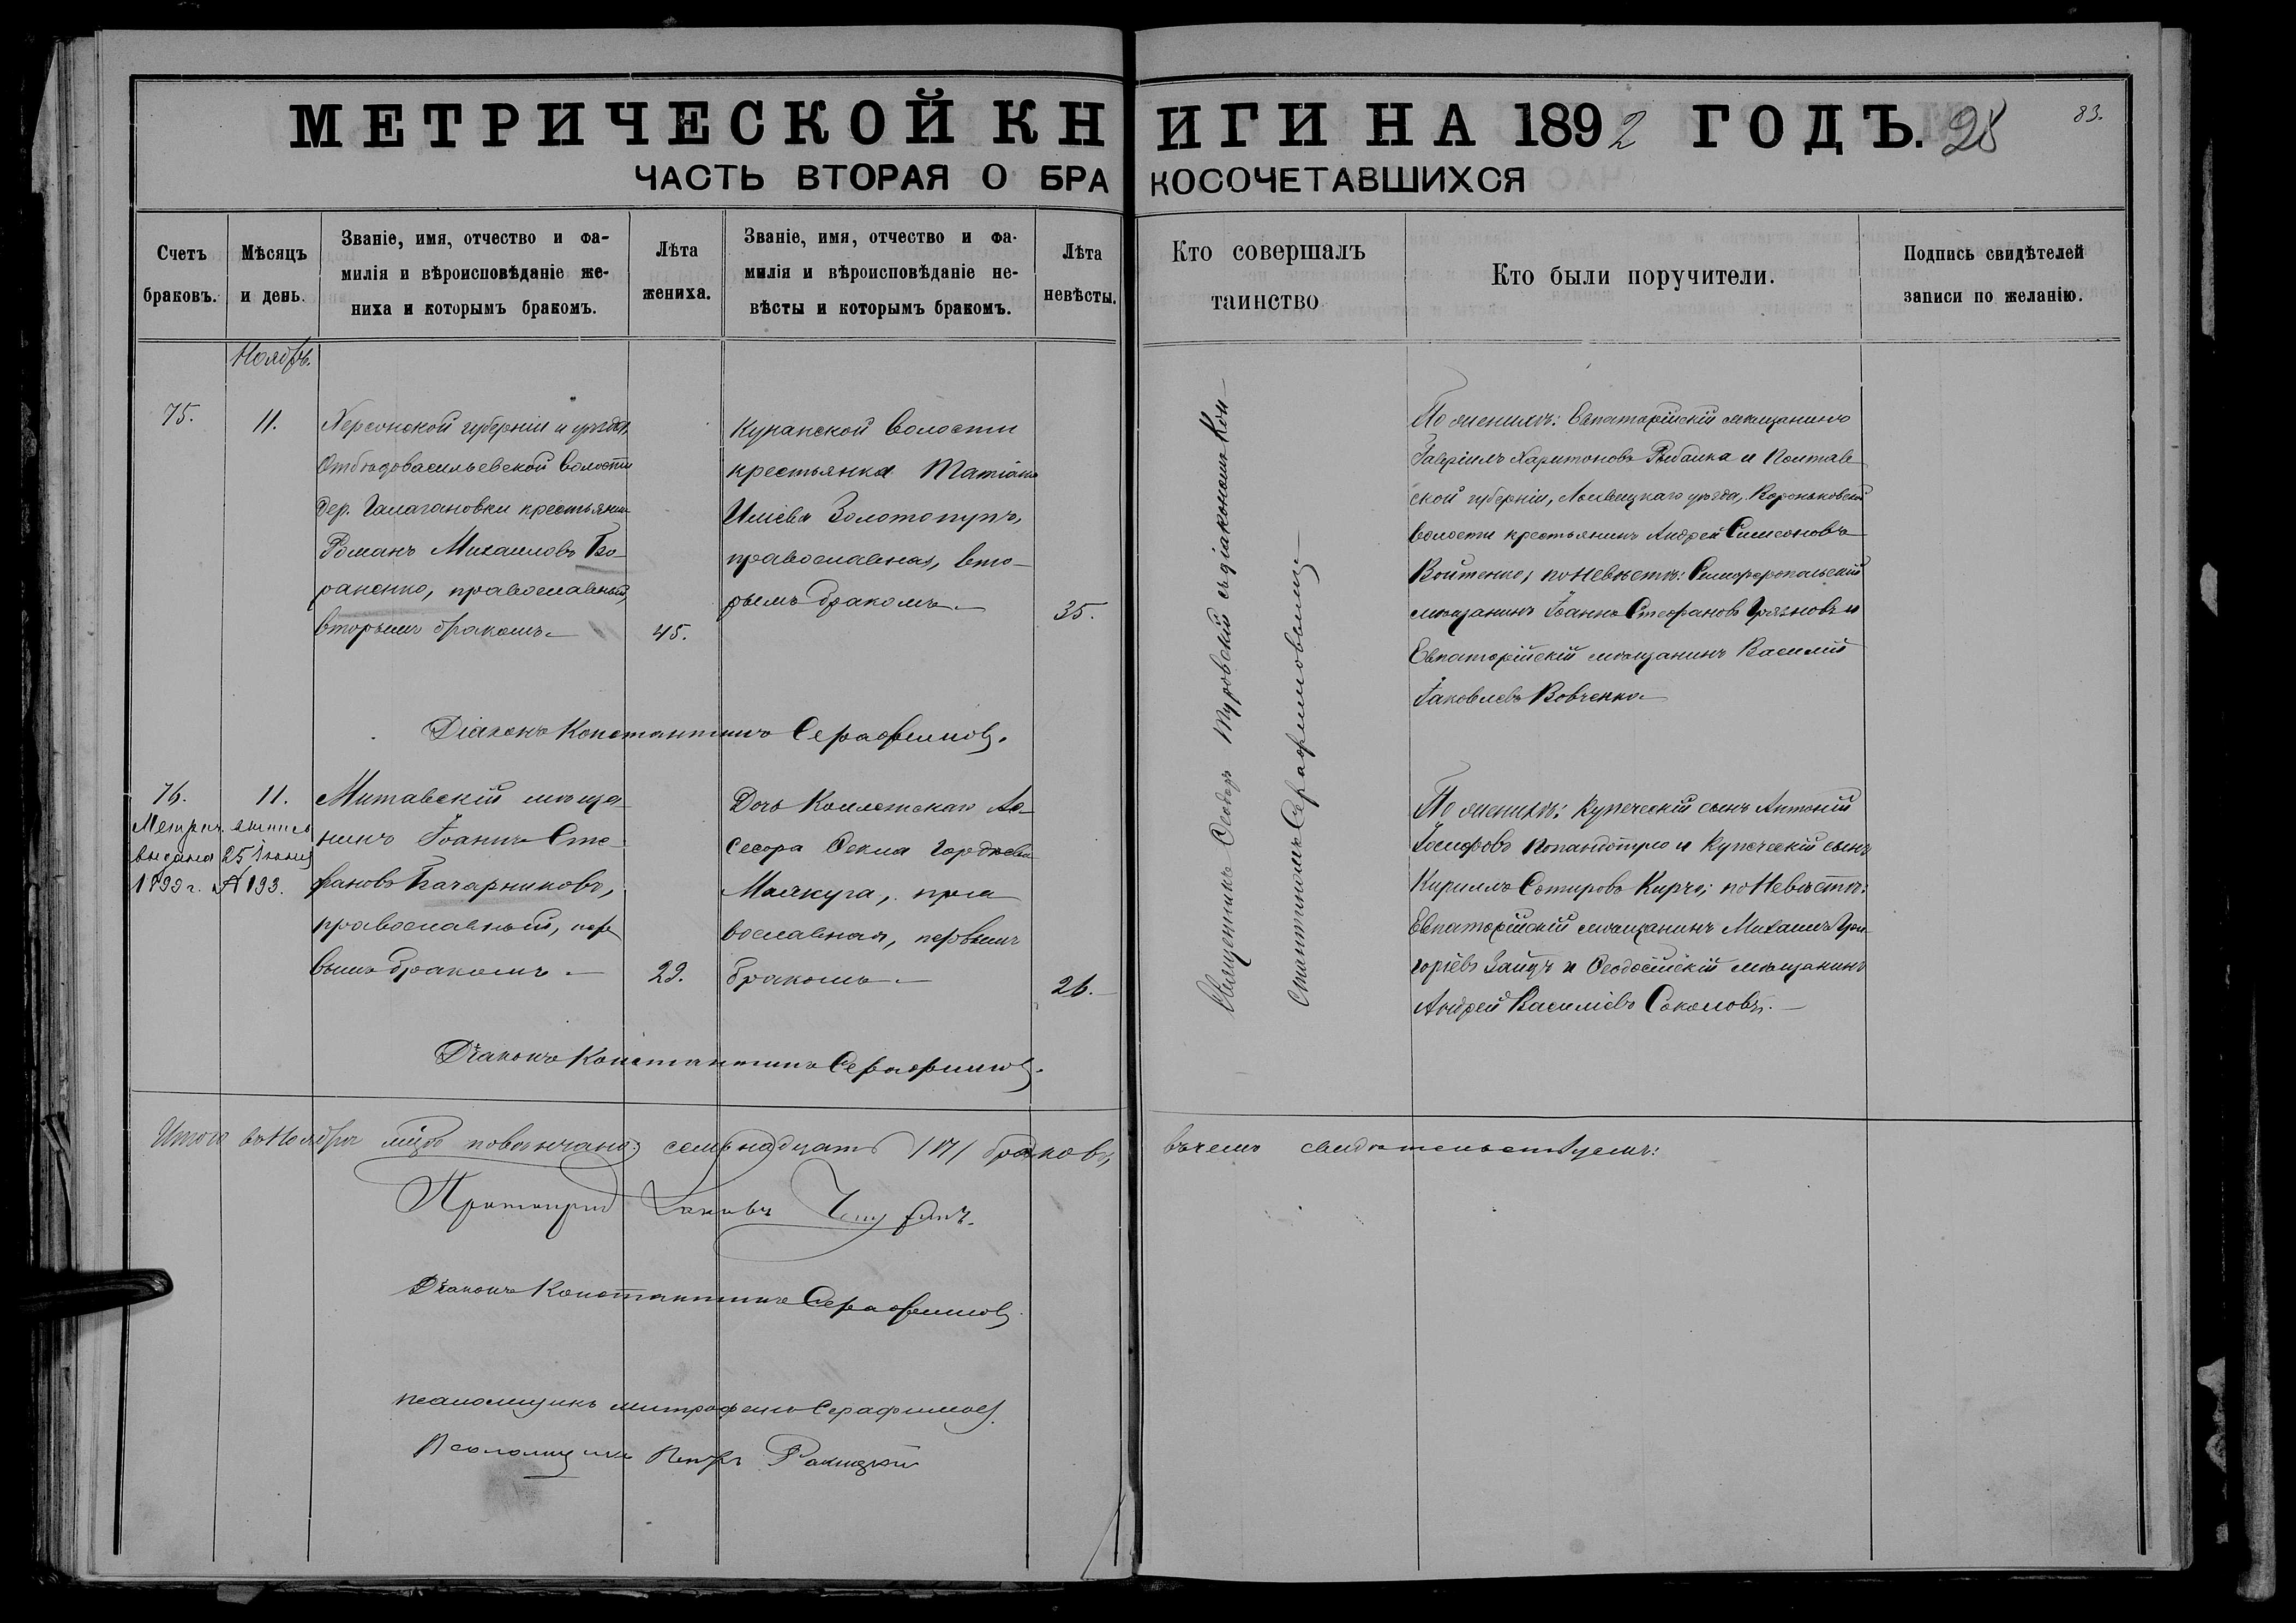 МЕТРИЧЕСКОЙ КНИГИ НА 1892 ГОДЪ. 28
83.
ЧАСТЬ ВТОРАЯ О БРАКОСОЧЕТАВШИХСЯ
Счетъ
браковъ.
Мѣсяцъ
и день.
Званіе, имя, отчество и фа-
милія и вѣроисповѣданіе же-
ниха и которымъ бракомъ.
Лѣта
жениха.
Званіе, имя, отчество и фа-
милія и вѣроисповѣданіе не-
вѣсты и которымъ бракомъ.
Лѣта
невѣсты.
Кто совершалъ
таинство
Кто были поручители.
Подпись свидѣтелей
записи по желанію.
Ноябрь.
75.
11.
Херсонской губерніи и уѣзда,
волости
дер. Галагановки крестьянинъ
Романъ Михаиловъ Бо-
раненко, православный,
вторымъ бракомъ.
45.
волости
крестьянка Татіана
Иліева Золотопупъ,
православная, вто-
рымъ бракомъ.
35.
Священникъ Ѳеодоръ Туровскій съ діакономъ Кон-
стантиномъ Серафимовымъ
По женихѣ: Евпаторійскій мѣщанинъ
Гавріилъ Харитоновъ Рыбалка и Полтав
ской губерніи, уѣзда, Вороньковской
волости крестьянинъ Андрей Симеоновъ
Войтенко; по невѣстѣ: Симферопольскій
мѣщанинъ Іоаннъ Стефановъ Грязновъ и
Евпаторійскій мѣщанинъ Василій
Іаковлевъ Вовченко
Діаконъ Константинъ Серафимовъ.
76.
11.
Метрич. выпись
выдана 25 Іюня
1899 г. № 193.
Митавскій мѣща-
нинъ Іоаннъ Сте-
фановъ Бачарниковъ,
православный, пер
вымъ бракомъ.
29.
Дочь Коллежскаго Ас-
сесора Ѳекла Гордѣева
Малкуга, пра
вославная, первымъ
бракомъ.
26.
По женихѣ: Купеческій сынъ Антоній
Іосифовъ Попандопуло и Купеческій сынъ
Кириллъ Сотировъ Кирчо; по невѣстѣ:
Евпаторійскій мѣщанинъ Михаилъ Гри-
горіевъ Заяцъ и Ѳеодосійскій мѣщанинъ
Андрей Василіевъ Соколовъ.
Діаконъ Константинъ Серафимовъ.
Итого въ Ноябрѣ мѣсяцѣ повѣнчано семьнадцать /17/ браковъ, въ чемъ свидѣтельствуемъ:
Протоіерей Іаковъ Чепуринъ.
Діаконъ Константинъ Серафимовъ
псаломщикъ митрофанъ Серафимовъ
Псаломщикъ Петръ Ракицкій